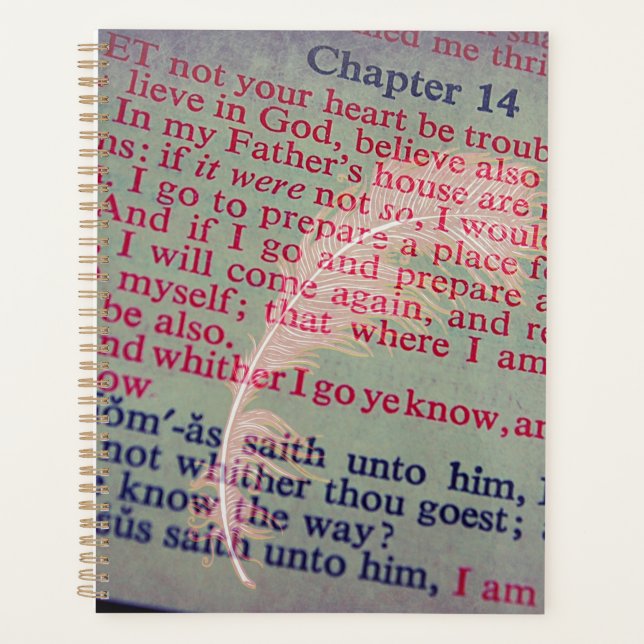 ned me thri
Chapter 14
ET not your heart be troub
lieve in God, believe also
In my Father's house are
ns: if it were not so, I would
I go to prepare a place fo
And if I go and prepare a
I will come again, and re
myself; that where I am
be also.
nd whither I go ye know, an
ow
ŏm′-ăs saith unto him,
not whither thou goest;
know the way?
sŭs saith unto him, I am